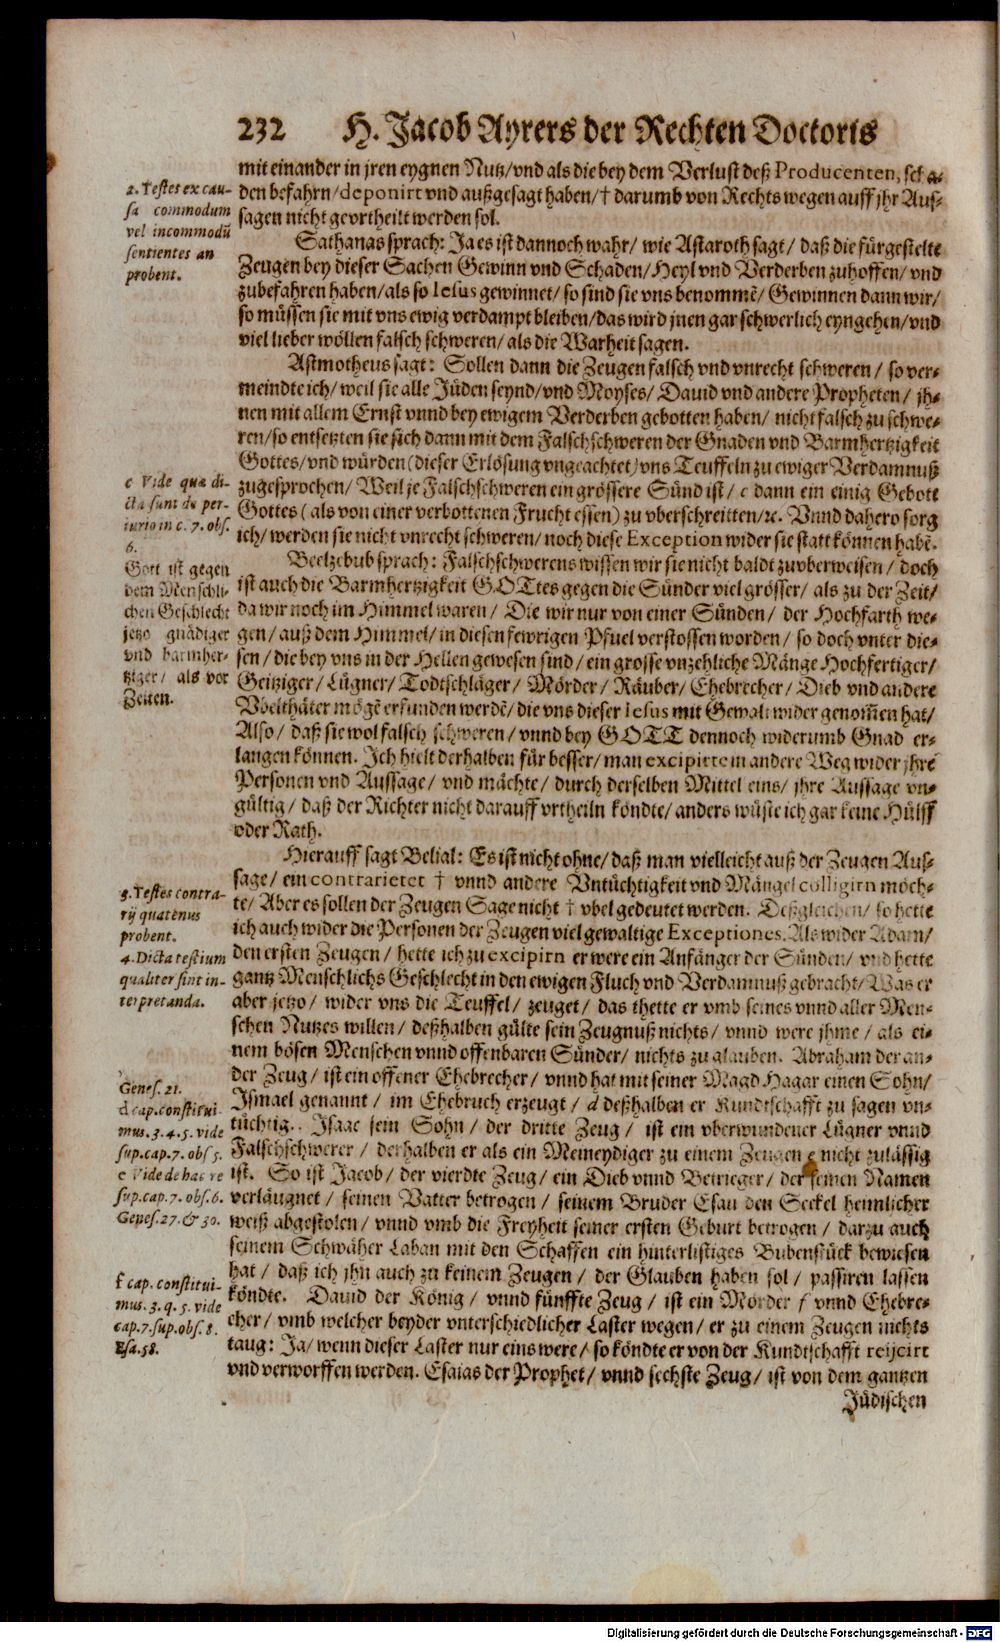 232 H. Jacob Ayrers der Rechten Doctoris
mit einander in jren eygnen Nutz/vnd als die bey dem Verlust deß Producenten, scha-
den befahrn/deponirt vnd außgesagt haben/† darumb von Rechts wegen auff jhr Aus-
sagen nicht geurtheilt werden sol.
2. Testes ex cau-
sa commodum
vel incommodū
sentientes an
probent.
Sathanas sprach: Ja es ist dannoch wahr/ wie Astaroth sagt/ daß die fürgestelte
Zeugen bey dieser Sachen Gewinn vnd Schaden/Heyl vnd Verderben zuhoffen/ vnd
zubefahren haben/als so Iesus gewinnet/ so sind sie vns benommē/ Gewinnen dann wir/
so müssen sie mit vns ewig verdampt bleiben/das wird jnen gar schwerlich eyngehen/vnd
viel lieber wöllen falsch schweren/ als die Warheit sagen.
Astmotheus sagt: Sollen dann die Zeugen falsch vnd vnrecht schweren/ so ver-
meindte ich/ weil sie alle Jüden seynd/vnd Moyses/ Dauid vnd andere Propheten/ jh-
nen mit allem Ernst vnnd bey ewigem Verderben gebotten haben/ nicht falsch zu schwe-
ren/so entsetzten sie sich dann mit dem Falschschweren der Gnaden vnd Barmhertzigkeit
Gottes/vnd würden (dieser Erlösung vngeachtet) vns Teuffeln zu ewiger Verdamnuß
zugesprochen/ Weil je Falschschweren ein grössere Sünd ist/ c dann ein einig Gebott
Gottes (als von einer verbottenen Frucht essen) zu vberschreitten/ꝛc. Vnnd dahero sorg
ich/werden sie nicht vnrecht schweren/ noch diese Exception wider sie statt können habē.
c Vide quæ di-
cta sunt de per-
iurio in c. 7. obs.
6.
Gott ist gegen
dem Menschli-
chen Geschlecht
jetzo gnädiger
vnd barmher-
tziger/ als vor
Zeiten.
Beelzebub sprach: Falschschwerens wissen wir sie nicht baldt zuvberweisen/ doch
ist auch die Barmhertzigkeit GOTtes gegen die Sünder viel grösser/ als zu der Zeit/
da wir noch im Himmel waren/ Die wir nur von einer Sünden/ der Hochfarth we-
gen/ auß dem Himmel/in diesen fewrigen Pfuel verstossen worden/ so doch vnter die-
sen/ die bey vns in der Hellen gewesen sind/ ein grosse vnzehliche Mänge Hochfertiger/
Geitziger/ Lügner/ Todtschläger/ Mörder/ Räuber/ Ehebrecher/ Dieb vnd andere
Vbelthäter mögē erfunden werdē/ die vns dieser Iesus mit Gewalt wider genom̄en hat/
Also/ daß sie wol falsch schweren/ vnnd bey GOTT dennoch widerumb Gnad er-
langen können. Ich hielt derhalben für besser/ man excipirte in andere Weg wider jhre
Personen vnd Aussage/ vnd mächte/ durch derselben Mittel eins/ jhre Aussage vn-
gültig/ daß der Richter nicht darauff vrtheiln köndte/ anders wüste ich gar keine Hülff
oder Rath.
Hierauff sagt Belial: Es ist nicht ohne/ daß man vielleicht auß der Zeugen Aus-
sage/ ein contrarietet † vnnd andere Vntüchtigkeit vnd Mängel colligirn möch-
te/ Aber es sollen der Zeugen Sage nicht † vbel gedeutet werden. Deßgleichen/ so hette
ich auch wider die Personen der Zeugen viel gewaltige Exceptiones. Als wider Adam/
den ersten Zeugen/ hette ich zu excipirn er were ein Anfänger der Sünden/ vnd hette
gantz Menschlichs Geschlecht in den ewigen Fluch vnd Verdamnuß gebracht/ Was er
aber jetzo/ wider vns die Teuffel/ zeuget/ das thette er vmb seines vnnd aller Men-
schen Nutzes willen/ deßhalben gülte sein Zeugnuß nichts/ vnnd were jhme/ als ei-
nem bösen Menschen vnnd offenbaren Sünder/ nichts zu glauben. Abraham der an-
der Zeug/ ist ein offener Ehebrecher/ vnnd hat mit seiner Magd Hagar einen Sohn/
Ismael genannt/ im Ehebruch erzeugt/ d deßhalben er Kundtschafft zu sagen vn-
tüchtig. Isaac sein Sohn/ der dritte Zeug/ ist ein vberwundener Lügner vnnd
Falschschwerer/ derhalben er als ein Meineydiger zu einem Zeugen e nicht zulässig
ist. So ist Jacob/ der vierdte Zeug/ ein Dieb vnnd Betrieger/ der seinen Namen
verläugnet/ seinen Vatter betrogen/ seinem Bruder Esau den Seckel heimlicher
weiß abgestolen/ vnnd vmb die Freyheit seiner ersten Geburt betrogen/ darzu auch
seinem Schwäher Laban mit den Schaffen ein hinterlistiges Bubenstück bewiesen
hat/ daß ich jhn auch zu keinem Zeugen/ der Glauben haben sol/ passiren lassen
köndte. Dauid der König/ vnnd fünffte Zeug/ ist ein Mörder f vnnd Ehebre-
cher/ vmb welcher beyder vnterschiedlicher Laster wegen/ er zu einem Zeugen nichts
taug: Ja/ wenn dieser Laster nur eins were/ so köndte er von der Kundtschafft reijcirt
vnd verworffen werden. Esaias der Prophet/ vnnd sechste Zeug/ ist von dem gantzen
3. Testes contra-
rij quatenus
probent.
4. Dicta testium
qualiter sint in-
terpretanda.
Genes. 21.
d cap. constitui-
mus. 3. 4. 5. vide
sup. cap. 7. obs 5.
e Vide de hac re
sup. cap. 7. obs. 6.
Genes. 27. & 30.
f cap. constitui-
mus. 3. q. 5. vide
cap. 7. sup. obs. 8.
Esa. 58.
Jüdischen
Digitalisierung gefördert durch die Deutsche Forschungsgemeinschaft - DFG